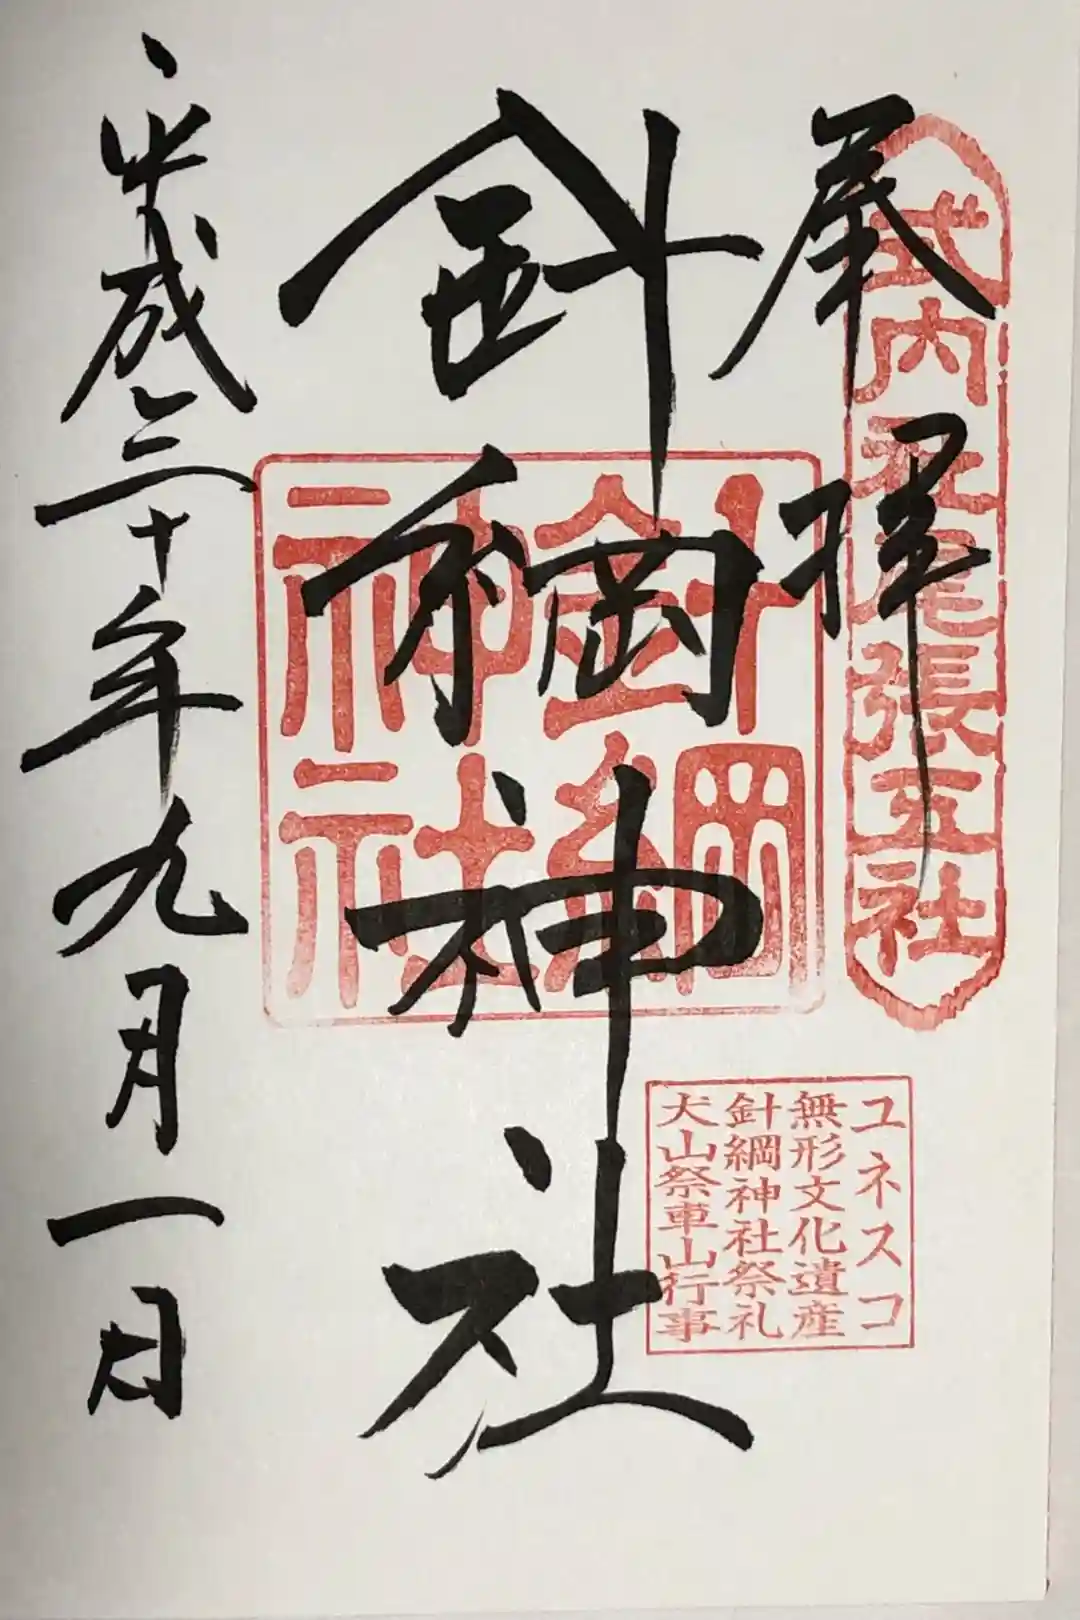 奉拝
式内社尾張五社
針綱神社
針綱
神社
ユネスコ
無形文化遺産
針綱神社祭礼
犬山祭車山行事
平成三十年九月一日